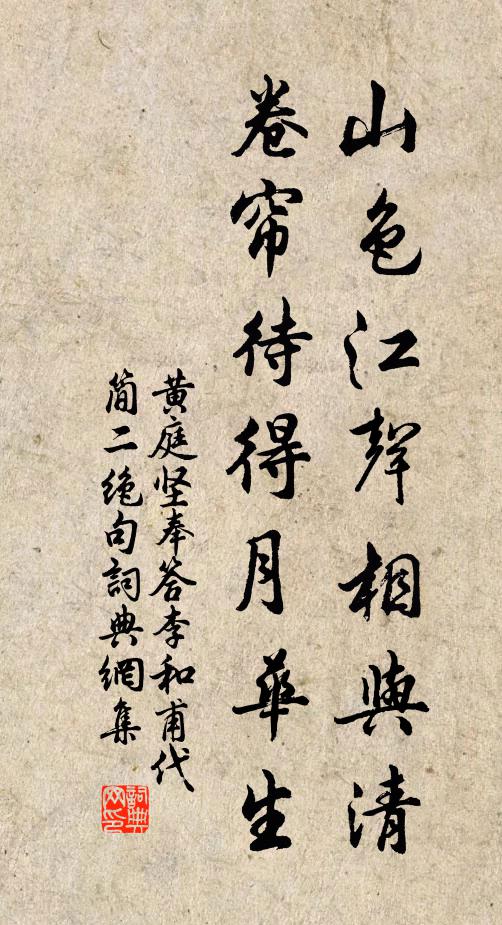 山色江聲相與清
卷帘待得月華生
黄庭坚奉答李和甫代
简二绝句詞典網集
詞典
网印